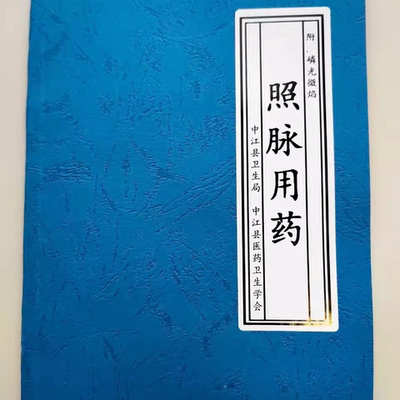 附：磷光微焰
照脉用药
中江县卫生局 中江县医药卫生学会